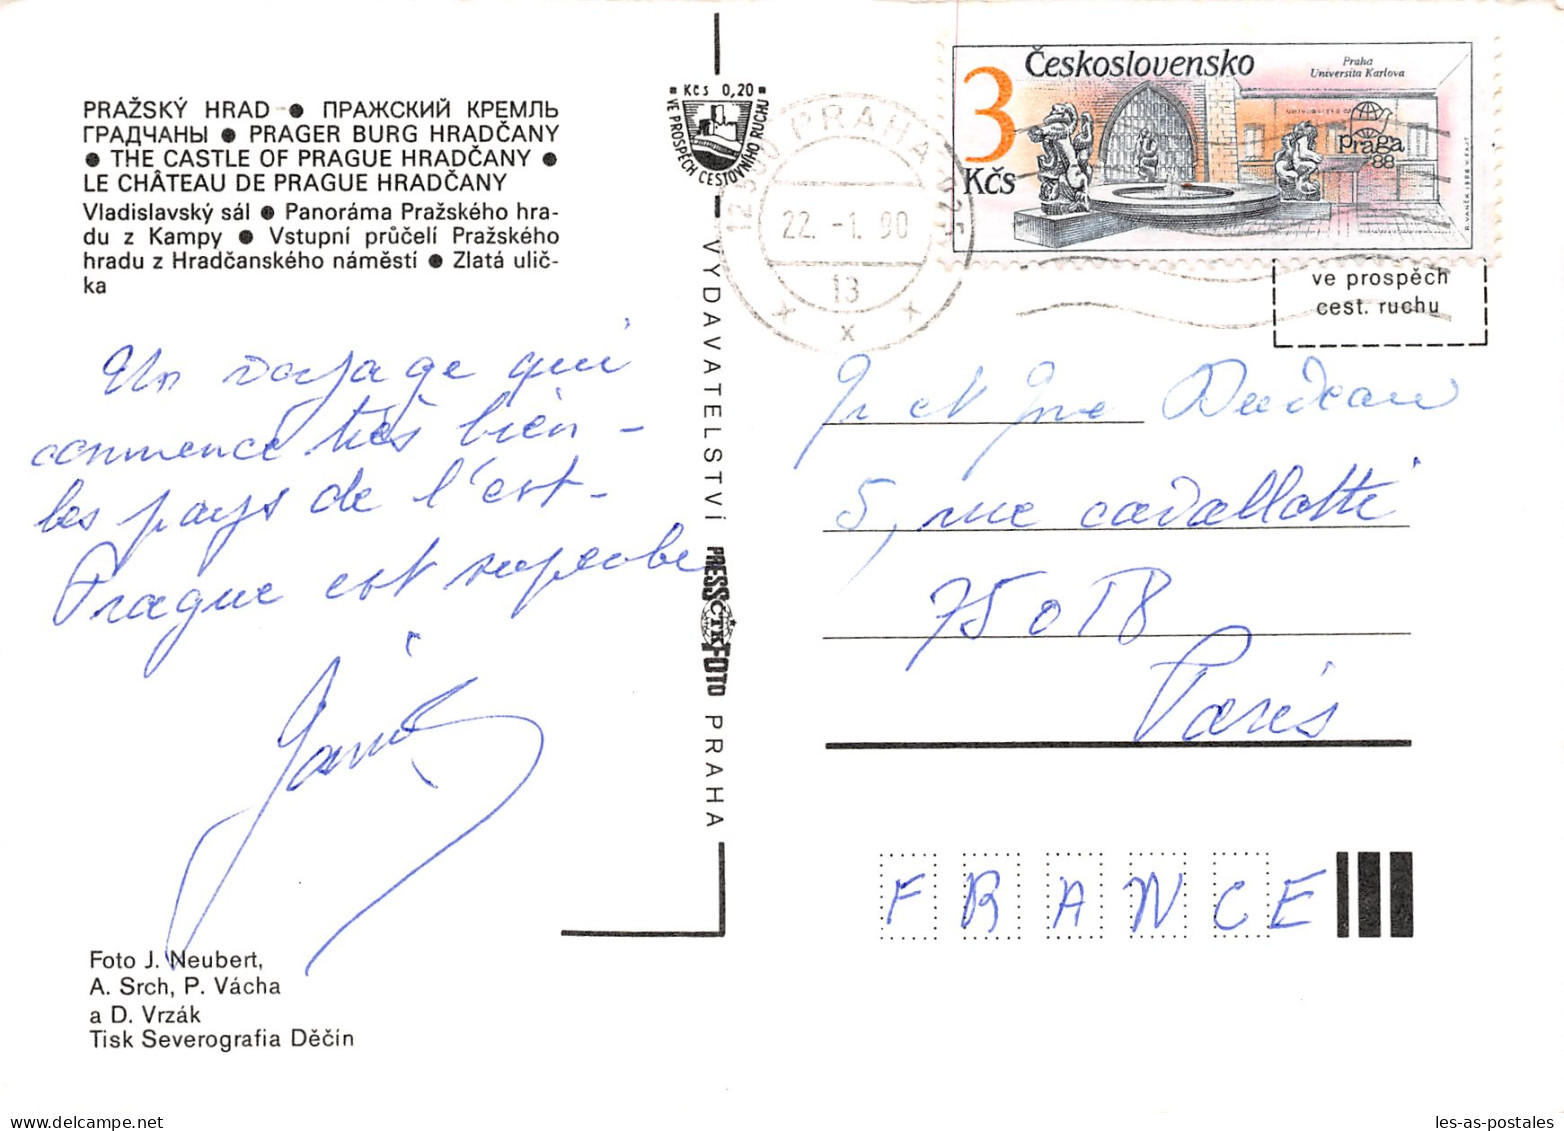 PRAŽSKÝ HRAD ● ПРАЖСКИЙ КРЕМЛЬ
ГРАДЧАНЫ ● PRAGER BURG HRADČANY
● THE CASTLE OF PRAGUE HRADČANY ●
LE CHÂTEAU DE PRAGUE HRADČANY
Vladislavský sál ● Panoráma Pražského hra-
du z Kampy ● Vstupní průčelí Pražského
hradu z Hradčanského náměstí ● Zlatá ulič-
ka
Un voyage qui
commence très bien -
les pays de l'est -
Prague est superbe
Foto J. Neubert,
A. Srch, P. Vácha
a D. Vrzák
Tisk Severografia Děčín
Kčs 0,20
VE PROSPĚCH CESTOVNÍHO RUCHU
VYDAVATELSTVÍ
PRESSFOTO
ČTK
PRAHA
PRAHA 025
22. -1. 90
13
x x x
Československo
3
Kčs
Praha
Universita Karlova
praga
88
ve prospěch
cest. ruchu
et
5, rue cavallotti
75018
Paris
FRANCE
les-as-postales